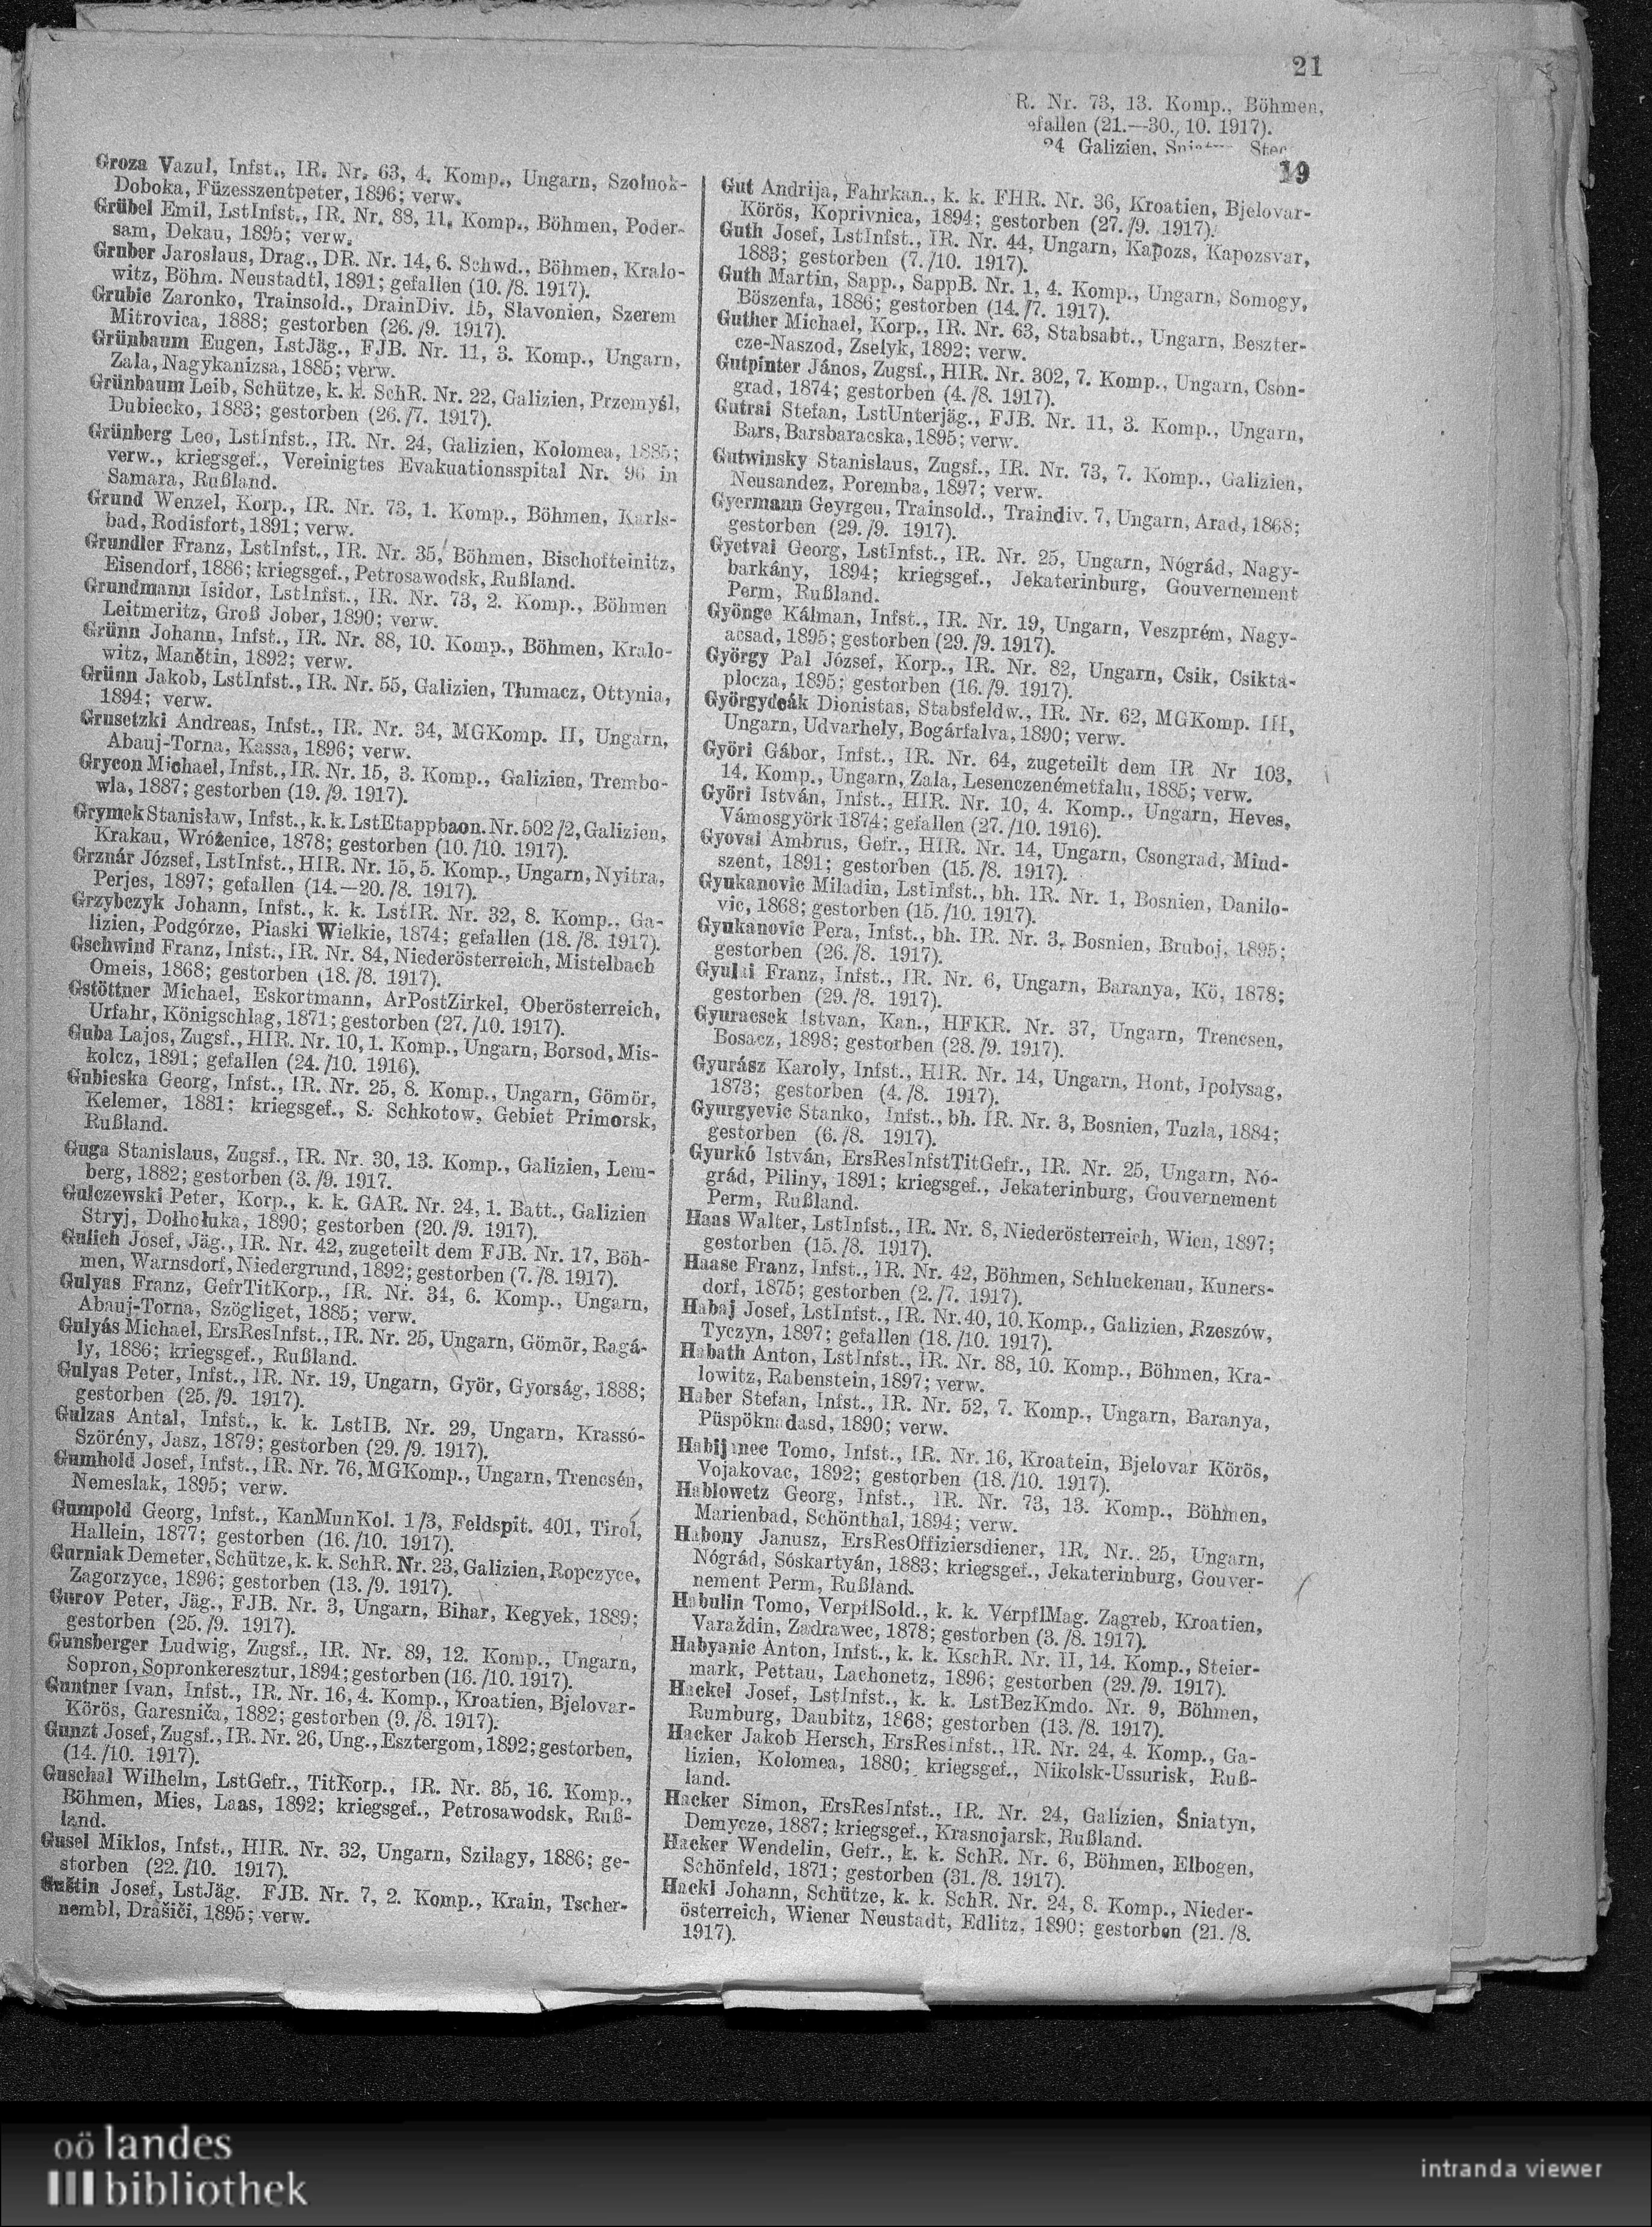 21
R. Nr. 73, 13. Komp., Böhmen,
efallen (21.—30., 10. 1917).
24 Galizien,
19
Groza Vazul, Infst., IR. Nr. 63, 4. Komp., Ungarn, Szolnok-
Doboka, Füzesszentpeter, 1896; verw.
Grübel Emil, LstInfst., IR. Nr. 88, 11. Komp., Böhmen, Poder-
sam, Dekau, 1895; verw.
Gruber Jaroslaus, Drag., DR. Nr. 14, 6. Schwd., Böhmen, Kralo-
witz, Böhm. Neustadtl, 1891; gefallen (10./8. 1917).
Grubic Zaronko, Trainsold., DrainDiv. 15, Slavonien, Szerem
Mitrovica, 1888; gestorben (26./9. 1917).
Grünbaum Eugen, LstJäg., FJB. Nr. 11, 3. Komp., Ungarn,
Zala, Nagykanizsa, 1885; verw.
Grünbaum Leib, Schütze, k. k. SchR. Nr. 22, Galizien, Przemyśl,
Dubiecko, 1883; gestorben (26./7. 1917).
Grünberg Leo, LstInfst., IR. Nr. 24, Galizien, Kolomea, 1885;
verw., kriegsgef., Vereinigtes Evakuationsspital Nr. 96 in
Samara, Rußland.
Grund Wenzel, Korp., IR. Nr. 73, 1. Komp., Böhmen, Karls-
bad, Rodisfort, 1891; verw.
Grundler Franz, LstInfst., IR. Nr. 35, Böhmen, Bischofteinitz,
Eisendorf, 1886; kriegsgef., Petrosawodsk, Rußland.
Grundmann Isidor, LstInfst., IR. Nr. 73, 2. Komp., Böhmen
Leitmeritz, Groß Jober, 1890; verw.
Grünn Johann, Infst., IR. Nr. 88, 10. Komp., Böhmen, Kralo-
witz, Manětin, 1892; verw.
Grünn Jakob, LstInfst., IR. Nr. 55, Galizien, Tłumacz, Ottynia,
1894; verw.
Grusetzki Andreas, Infst., IR. Nr. 34, MGKomp. II, Ungarn,
Abauj-Torna, Kassa, 1896; verw.
Grycon Michael, Infst., IR. Nr. 15, 3. Komp., Galizien, Trembo-
wla, 1887; gestorben (19./9. 1917).
Grymek Stanisław, Infst., k. k. LstEtappbaon. Nr. 502/2, Galizien,
Krakau, Wróżenice, 1878; gestorben (10./10. 1917).
Grznár József, LstInfst., HIR. Nr. 15, 5. Komp., Ungarn, Nyitra,
Perjes, 1897; gefallen (14.—20./8. 1917).
Grzybczyk Johann, Infst., k. k. LstIR. Nr. 32, 8. Komp., Ga-
lizien, Podgórze, Piaski Wielkie, 1874; gefallen (18./8. 1917).
Gschwind Franz, Infst., IR. Nr. 84, Niederösterreich, Mistelbach
Omeis, 1868; gestorben (18./8. 1917).
Gstöttner Michael, Eskortmann, ArPostZirkel, Oberösterreich,
Urfahr, Königschlag, 1871; gestorben (27./10. 1917).
Guba Lajos, Zugsf., HIR. Nr. 10, 1. Komp., Ungarn, Borsod, Mis-
kolcz, 1891; gefallen (24./10. 1916).
Gubicska Georg, Infst., IR. Nr. 25, 8. Komp., Ungarn, Gömör,
Kelemer, 1881; kriegsgef., S. Schkotow, Gebiet Primorsk,
Rußland.
Guga Stanislaus, Zugsf., IR. Nr. 30, 13. Komp., Galizien, Lem-
berg, 1882; gestorben (3./9. 1917.
Gulczewski Peter, Korp., k. k. GAR. Nr. 24, 1. Batt., Galizien
Stryj, Dołhołuka, 1890; gestorben (20./9. 1917).
Gulich Josef, Jäg., IR. Nr. 42, zugeteilt dem FJB. Nr. 17, Böh-
men, Warnsdorf, Niedergrund, 1892; gestorben (7./8. 1917).
Gulyas Franz, GefrTitKorp., IR. Nr. 34, 6. Komp., Ungarn,
Abauj-Torna, Szögliget, 1885; verw.
Gulyás Michael, ErsResInfst., IR. Nr. 25, Ungarn, Gömör, Ragá-
ly, 1886; kriegsgef., Rußland.
Gulyas Peter, Infst., IR. Nr. 19, Ungarn, Györ, Gyorság, 1888;
gestorben (25./9. 1917).
Gulzas Antal, Infst., k. k. LstIB. Nr. 29, Ungarn, Krassó-
Szörény, Jasz, 1879; gestorben (29./9. 1917).
Gumhold Josef, Infst., IR. Nr. 76, MGKomp., Ungarn, Trencsén,
Nemeslak, 1895; verw.
Gumpold Georg, Infst., KanMunKol. 1/3, Feldspit. 401, Tirol,
Hallein, 1877; gestorben (16./10. 1917).
Gurniak Demeter, Schütze, k. k. SchR. Nr. 23, Galizien, Ropczyce,
Zagorzyce, 1896; gestorben (13./9. 1917).
Gurov Peter, Jäg., FJB. Nr. 3, Ungarn, Bihar, Kegyek, 1889;
gestorben (25./9. 1917).
Gunsberger Ludwig, Zugsf., IR. Nr. 89, 12. Komp., Ungarn,
Sopron, Sopronkeresztur, 1894; gestorben (16./10. 1917).
Guntner Ivan, Infst., IR. Nr. 16, 4. Komp., Kroatien, Bjelovar-
Körös, Garesniča, 1882; gestorben (9./8. 1917).
Gunzt Josef, Zugsf., IR. Nr. 26, Ung., Esztergom, 1892; gestorben,
(14./10. 1917).
Guschal Wilhelm, LstGefr., TitKorp., IR. Nr. 35, 16. Komp.,
Böhmen, Mies, Laas, 1892; kriegsgef., Petrosawodsk, Ruß-
land.
Gusel Miklos, Infst., HIR. Nr. 32, Ungarn, Szilagy, 1886; ge-
storben (22./10. 1917).
Guštin Josef, LstJäg. FJB. Nr. 7, 2. Komp., Krain, Tscher-
nembl, Drašiči, 1895; verw.
Gut Andrija, Fahrkan., k. k. FHR. Nr. 36, Kroatien, Bjelovar-
Körös, Koprivnica, 1894; gestorben (27./9. 1917).
Guth Josef, LstInfst., IR. Nr. 44, Ungarn, Kapozs, Kapozsvar,
1883; gestorben (7./10. 1917).
Guth Martin, Sapp., SappB. Nr. 1, 4. Komp., Ungarn, Somogy,
Böszenfa, 1886; gestorben (14./7. 1917).
Guther Michael, Korp., IR. Nr. 63, Stabsabt., Ungarn, Beszter-
cze-Naszod, Zselyk, 1892; verw.
Gutpinter János, Zugsf., HIR. Nr. 302, 7. Komp., Ungarn, Cson-
grad, 1874; gestorben (4./8. 1917).
Gutrai Stefan, LstUnterjäg., FJB. Nr. 11, 3. Komp., Ungarn,
Bars, Barsbaracska, 1895; verw.
Gutwinsky Stanislaus, Zugsf., IR. Nr. 73, 7. Komp., Galizien,
Neusandez, Poremba, 1897; verw.
Gyermann Geyrgeu, Trainsold., Traindiv. 7, Ungarn, Arad, 1868;
gestorben (29./9. 1917).
Gyetvai Georg, LstInfst., IR. Nr. 25, Ungarn, Nógrád, Nagy-
barkány, 1894; kriegsgef., Jekaterinburg, Gouvernement
Perm, Rußland.
Gyönge Kálman, Infst., IR. Nr. 19, Ungarn, Veszprém, Nagy-
acsad, 1895; gestorben (29./9. 1917).
György Pal József, Korp., IR. Nr. 82, Ungarn, Csik, Csikta-
plocza, 1895; gestorben (16./9. 1917).
Györgydeák Dionistas, Stabsfeldw., IR. Nr. 62, MGKomp. III,
Ungarn, Udvarhely, Bogárfalva, 1890; verw.
Györi Gábor, Infst., IR. Nr. 64, zugeteilt dem IR Nr 103,
14. Komp., Ungarn, Zala, Lesenczenémetfalu, 1885; verw.
Györi István, Infst., HIR. Nr. 10, 4. Komp., Ungarn, Heves,
Vámosgyörk 1874; gefallen (27./10. 1916).
Gyovai Ambrus, Gefr., HIR. Nr. 14, Ungarn, Csongrad, Mind-
szent, 1891; gestorben (15./8. 1917).
Gyukanovic Miladin, LstInfst., bh. IR. Nr. 1, Bosnien, Danilo-
vic, 1868; gestorben (15./10. 1917).
Gyukanovic Pera, Infst., bh. IR. Nr. 3, Bosnien, Bruboj, 1895;
gestorben (26./8. 1917).
Gyulai Franz, Infst., IR. Nr. 6, Ungarn, Baranya, Kö, 1878;
gestorben (29./8. 1917).
Gyuracsek Istvan, Kan., HFKR. Nr. 37, Ungarn, Trencsen,
Bosacz, 1898; gestorben (28./9. 1917).
Gyurász Karoly, Infst., HIR. Nr. 14, Ungarn, Hont, Ipolysag,
1873; gestorben (4./8. 1917).
Gyurgyevic Stanko, Infst., bh. IR. Nr. 3, Bosnien, Tuzla, 1884;
gestorben (6./8. 1917).
Gyurkó István, ErsResInfstTitGefr., IR. Nr. 25, Ungarn, Nó-
grád, Piliny, 1891; kriegsgef., Jekaterinburg, Gouvernement
Perm, Rußland.
Haas Walter, LstInfst., IR. Nr. 8, Niederösterreich, Wien, 1897;
gestorben (15./8. 1917).
Haase Franz, Infst., IR. Nr. 42, Böhmen, Schluckenau, Kuners-
dorf, 1875; gestorben (2./7. 1917).
Habaj Josef, LstInfst., IR. Nr. 40, 10. Komp., Galizien, Rzeszów,
Tyczyn, 1897; gefallen (18./10. 1917).
Habath Anton, LstInfst., IR. Nr. 88, 10. Komp., Böhmen, Kra-
lowitz, Rabenstein, 1897; verw.
Haber Stefan, Infst., IR. Nr. 52, 7. Komp., Ungarn, Baranya,
Püspöknadasd, 1890; verw.
Habijanec Tomo, Infst., IR. Nr. 16, Kroatein, Bjelovar Körös,
Vojakovac, 1892; gestorben (18./10. 1917).
Hablowetz Georg, Infst., IR. Nr. 73, 13. Komp., Böhmen,
Marienbad, Schönthal, 1894; verw.
Habony Janusz, ErsResOffiziersdiener, IR. Nr. 25, Ungarn,
Nógrád, Sóskartyán, 1883; kriegsgef., Jekaterinburg, Gouver-
nement Perm, Rußland.
Habulin Tomo, VerpflSold., k. k. VerpflMag. Zagreb, Kroatien,
Varaždin, Zadrawec, 1878; gestorben (3./8. 1917).
Habyanic Anton, Infst., k. k. KschR. Nr. II, 14. Komp., Steier-
mark, Pettau, Lachonetz, 1896; gestorben (29./9. 1917).
Hackel Josef, LstInfst., k. k. LstBezKmdo. Nr. 9, Böhmen,
Rumburg, Daubitz, 1868; gestorben (13./8. 1917).
Hacker Jakob Hersch, ErsResInfst., IR. Nr. 24, 4. Komp., Ga-
lizien, Kolomea, 1880; kriegsgef., Nikolsk-Ussurisk, Ruß-
land.
Hacker Simon, ErsResInfst., IR. Nr. 24, Galizien, Śniatyn,
Demycze, 1887; kriegsgef., Krasnojarsk, Rußland.
Hacker Wendelin, Gefr., k. k. SchR. Nr. 6, Böhmen, Elbogen,
Schönfeld, 1871; gestorben (31./8. 1917).
Hackl Johann, Schütze, k. k. SchR. Nr. 24, 8. Komp., Nieder-
österreich, Wiener Neustadt, Edlitz, 1890; gestorben (21./8.
1917).
oö landes
bibliothek
intranda viewer